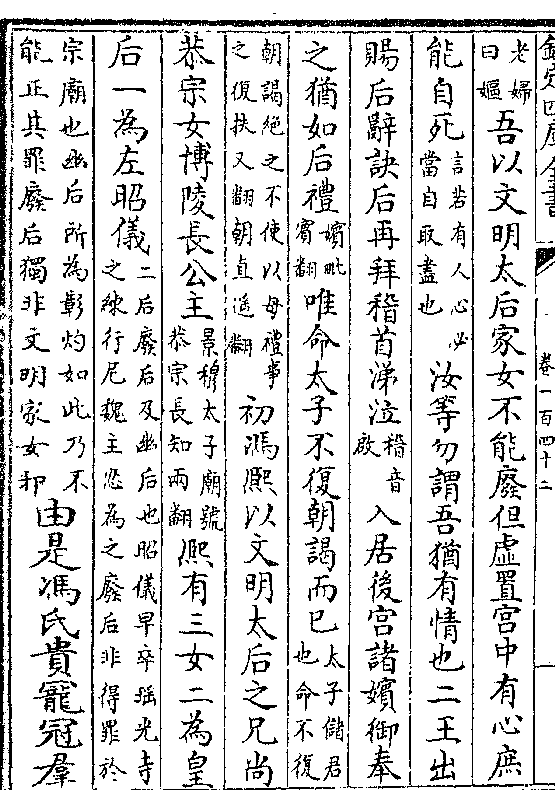 欽定四庫全書 卷一百四十二
老婦曰嫗吾以文明太后家女不能廢但虛置宮中有心庶
能自死言若有人心必當自取盡也汝等勿謂吾猶有情也二王出
賜后辭訣后再拜稽首涕泣稽音啟入居後宮諸嬪御奉
之猶如后禮嬪毗賓翻唯命太子不復朝謁而已太子儲君也命不復
朝謁絶之不使以母禮事之復扶又翻朝直遥翻初馮熙以文明太后之兄尚
恭宗女博陵長公主景穆太子廟號恭宗長知兩翻熙有三女二為皇
后一為左昭儀二后廢后及幽后也昭儀早卒瑶光寺之練行尼魏主恣為之廢后非得罪於
宗廟也幽后所為彰灼如此乃不能正其罪廢后獨非文明家女邪由是馮氏貴寵冠羣